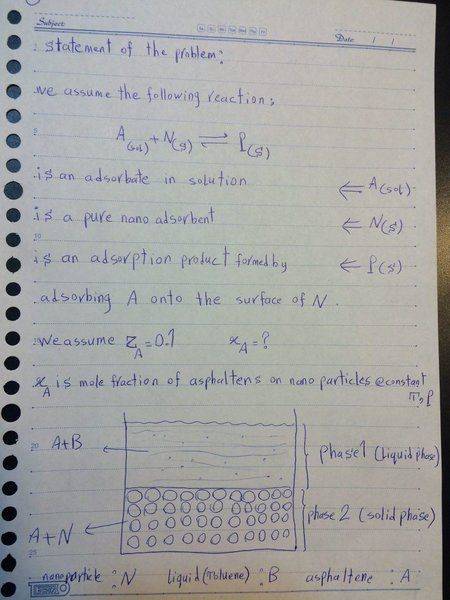 Subject:
Date: / /
statement of the problem:
we assume the following reaction:
A(sol) + N(s) ⇌ P(s)
is an adsorbate in solution ⇐ A(sol)
is a pure nano adsorbent ⇐ N(s)
is an adsorption product formed by ⇐ P(s)
adsorbing A onto the surface of N.
we assume z_A = 0.1 x_A = ?
x_A is mole fraction of asphaltens on nano particles @constant T, P
A+B
phase 1 (liquid phase)
A+N
phase 2 (solid phase)
nanoparticle : N liquid (Toluene) : B asphaltene : A